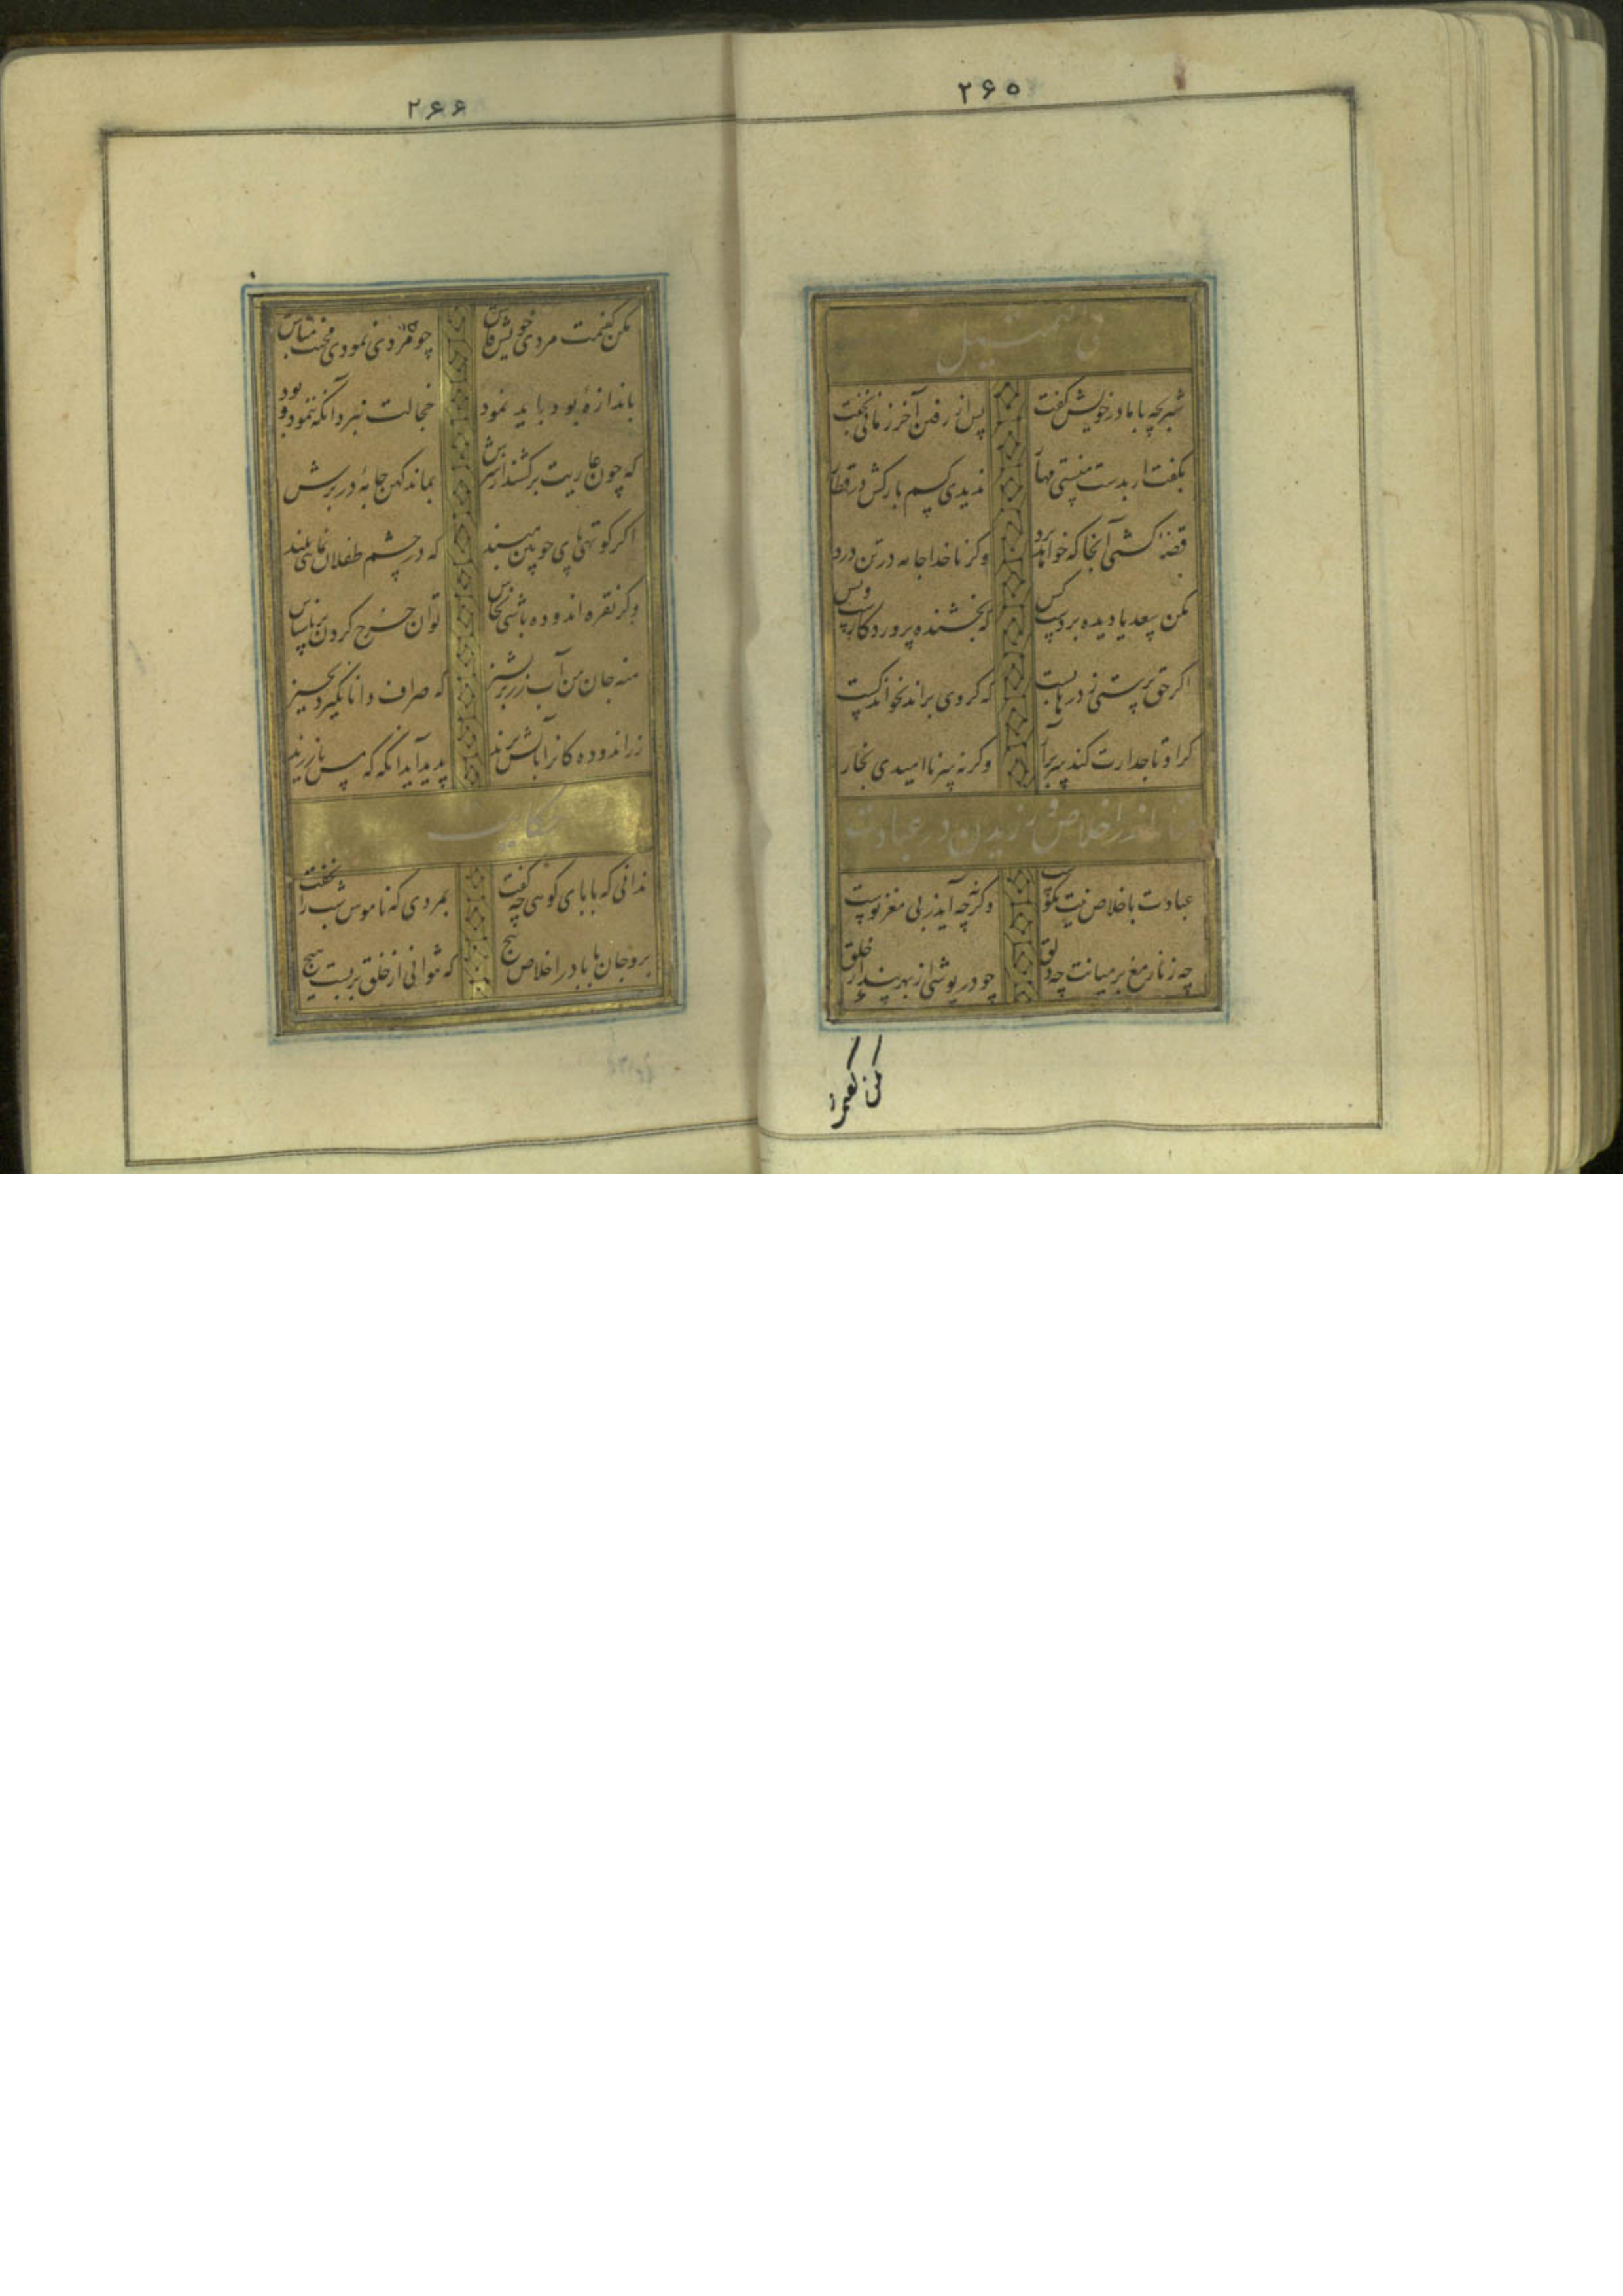 ۲۶۵
فی التمثیل
شتربچه با مادر خویش گفت پس از رفتن آخر زمانی بخفت
بگفت ار بدست منستی مهار ندیدی کسم بارکش در قطار
قضا کشتی آنجا که خواهد برد وگر ناخدا جامه در تن درد
مکن سعدیا دیده بر دست کس که بخشنده پروردگارست و بس
اگر حق پرستی ز درها بست که گر وی براند نخواند کست
گر او تاجدارت کند سر برآر وگرنه سر ناامیدی بخار
اندر اخلاص ورزیدن در عبادت
عبادت باخلاص نیت نکوست وگرنه چه آید ز بی مغز پوست
چه زنار مغ بر میانت چه دلق چو در پوشی از بهر پندار خلق
مکن گفتمت
۲۶۶
مکن گفتمت مردی خویش فاش چو مردی نمودی مخنث مباش
باندازهٔ بود باید نمود خجالت نبرد آنکه ننمود و بود
که چون عاریت برکشند از سرش بماند کهن جامهٔ در برش
اگر کوتهی پای چوبین مبند که در چشم طفلان نمایی بلند
وگر نقره اندوده باشی نحاس توان خرج کردن بر ناشناس
منه جان من آب زر بر پشیز که صراف دانا نگیرد بچیز
زراندوده کانرا بآتش برند پدید آید آنگه که مس یا زرند
حکایت
ندانی که بابای کوهی چه گفت بمردی که ناموس را شب نخفت
برو جان بابا در اخلاص پیچ که نتوانی از خلق بربست هیچ